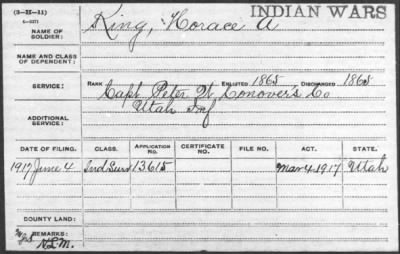 INDIAN WARS
(3-H-11)
NAME OF SOLDIER: King, Horace A
NAME AND CLASS OF DEPENDENT:
SERVICE: RANK ENLISTED 1865 DISCHARGED 1865
Capt Peter W Conover's Co
Utah Inf
ADDITIONAL SERVICE:
DATE OF FILING. CLASS. APPLICATION NO. CERTIFICATE NO. FILE NO. ACT. STATE.
1917 June 4 Ind Surv 13615 Mar 4, 1917 Utah
COUNTY LAND:
REMARKS:
N.L.M.